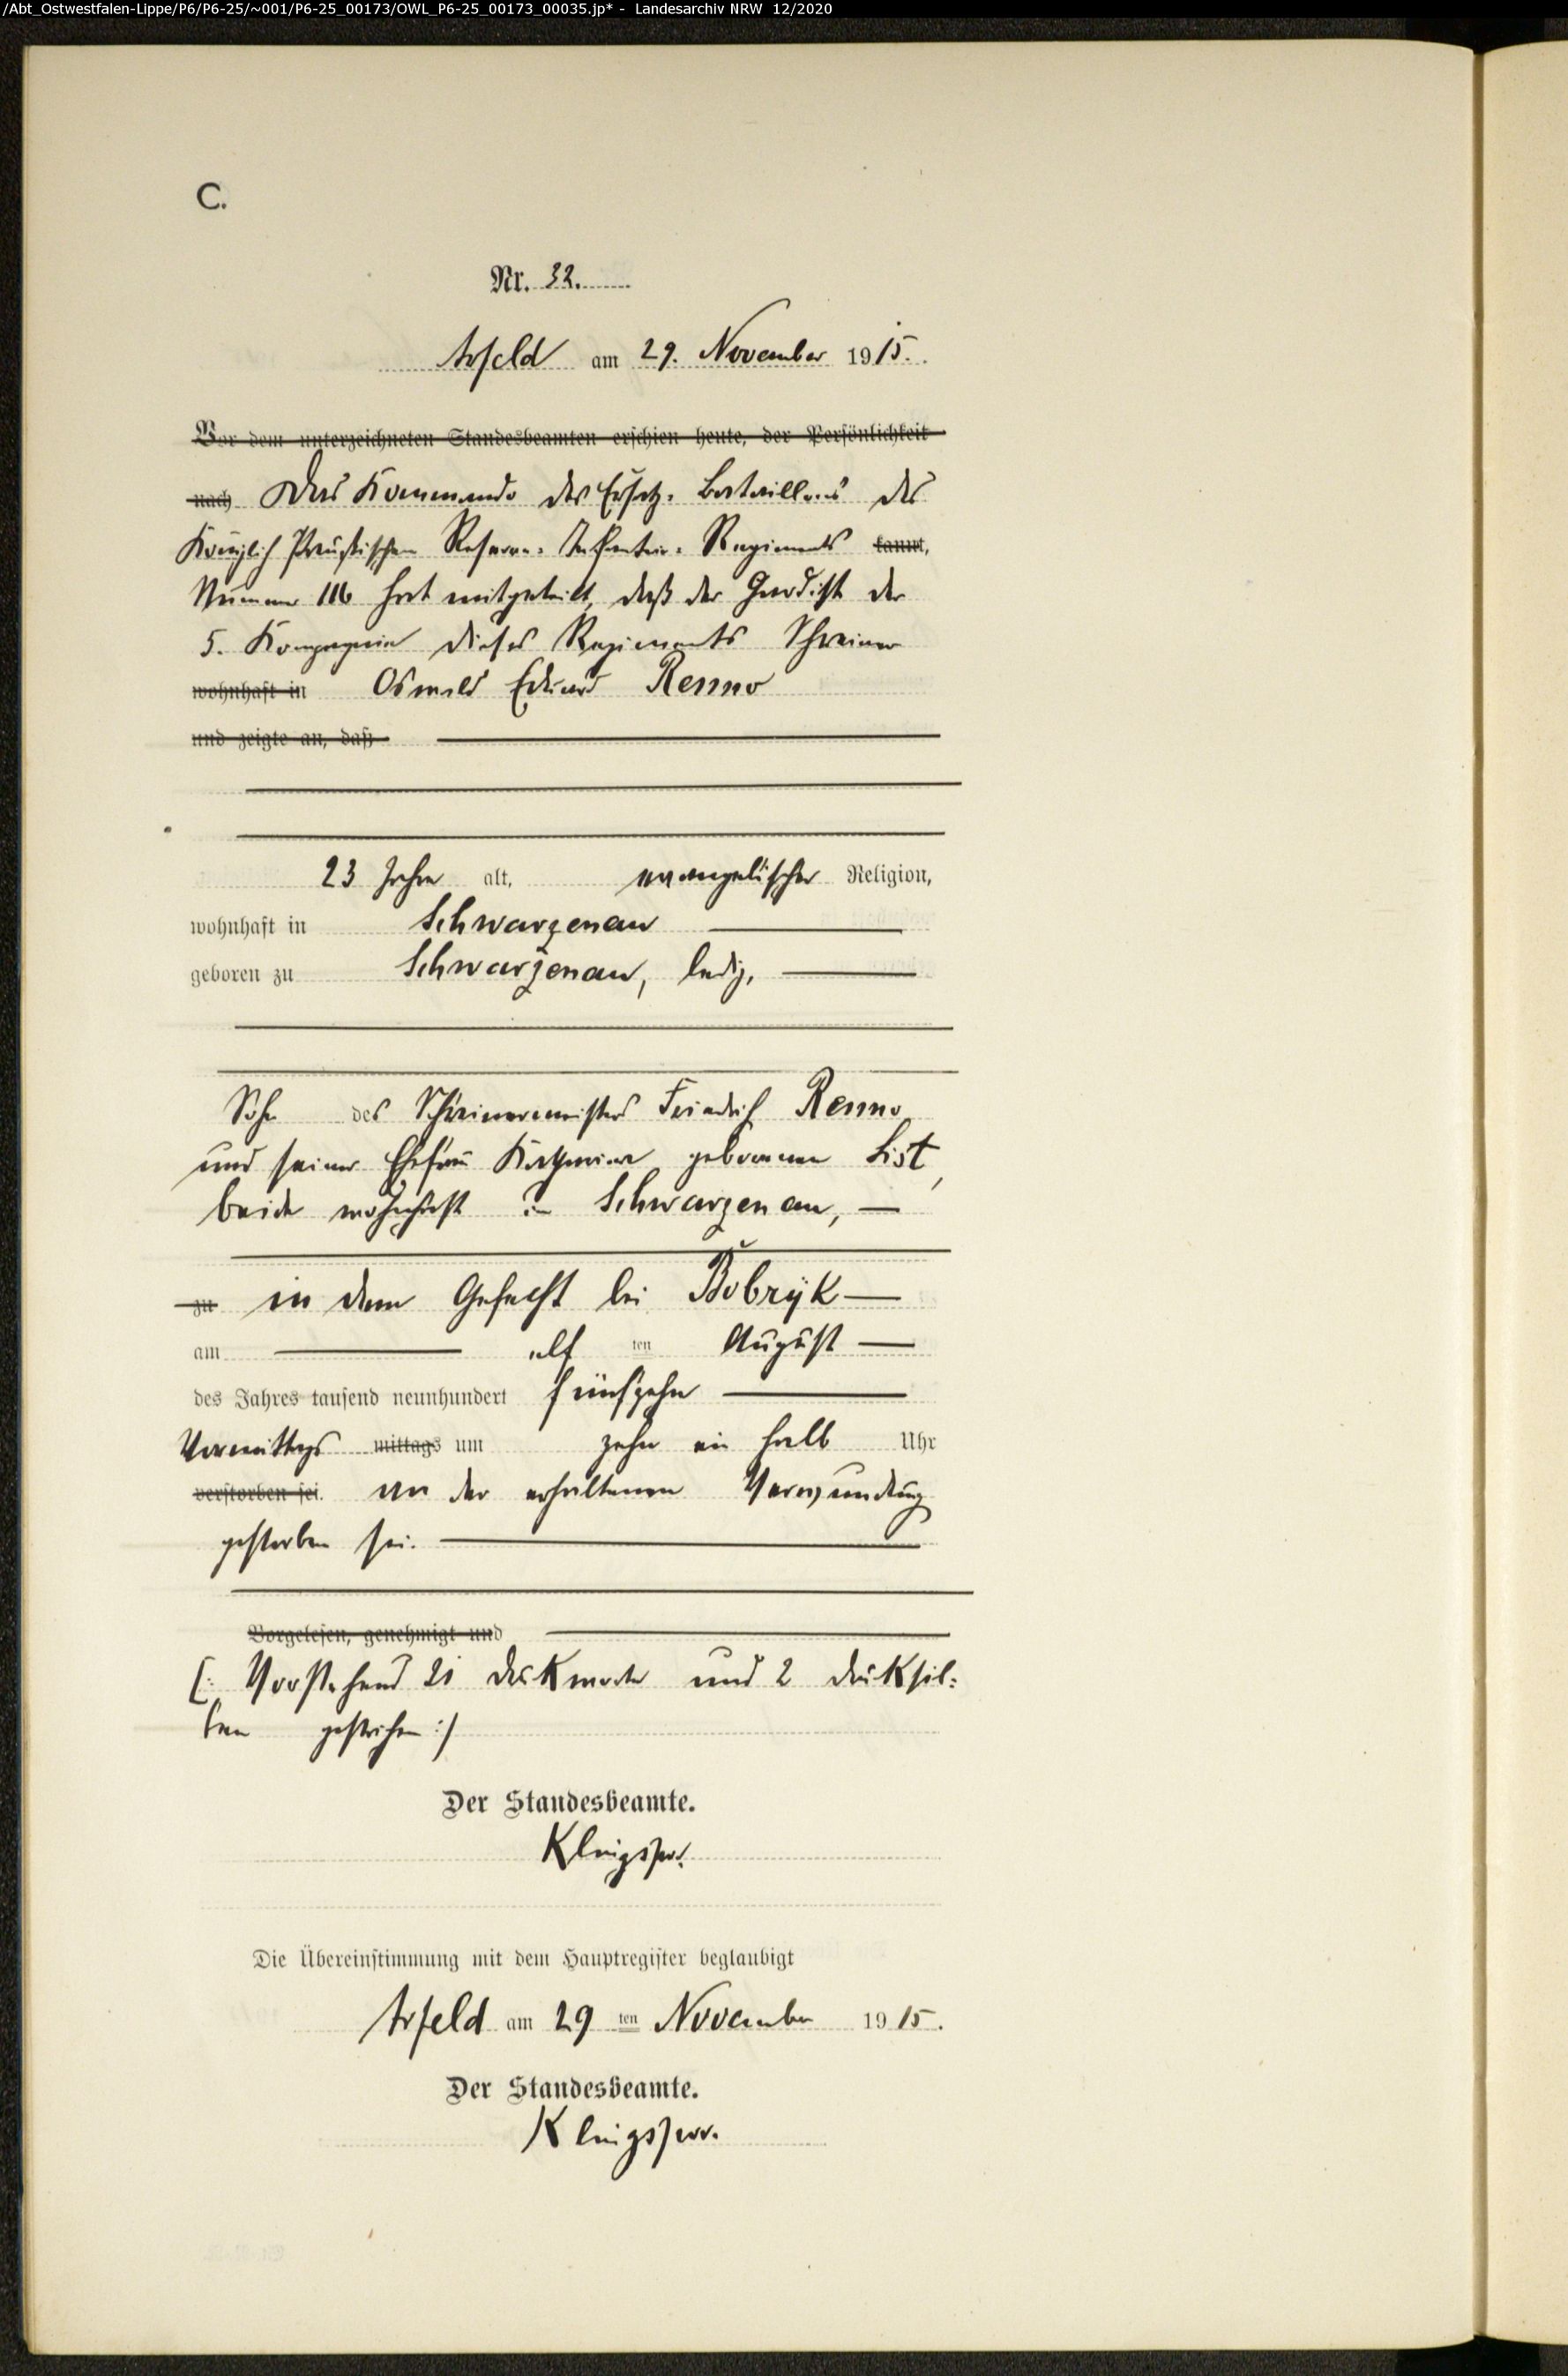 /Abt_Ostwestfalen-Lippe/P6/P6-25/~001/P6-25_00173/OWL_P6-25_00173_00035.jp* - Landesarchiv NRW 12/2020
C.
Nr. 32.
Arfeld am 29. November 1915.
Vor dem unterzeichneten Standesbeamten erschien heute, der Persönlichkeit
nach Das Kommando des Ersatz-Bataillons des
Königlich Preußischen Reserve-Infanterie-Regiments kannt,
Nummer 116 hat mitgeteilt, daß der Gardist der
5. Kompagnie dieses Regiments Schreiner
wohnhaft in Oswald Eduard Renno
und zeigte an, daß
23 Jahre alt, evangelischer Religion,
wohnhaft in Schwarzenau
geboren zu Schwarzenau, ledig,
Sohn des Schreinermeisters Friedrich Renno
und seiner Ehefrau Katharine geborenen List,
beide wohnhaft in Schwarzenau,
zu in dem Gefecht bei Bobryk
am elf ten August
des Jahres tausend neunhundert fünfzehn
Vormittags mittags um zehn ein halb Uhr
verstorben sei. an der erhaltenen Verwundung
gestorben sei.
Vorgelesen, genehmigt und
(: Vorstehend 21 Druckworte und 2 Drucksil-
ben gestrichen :)
Der Standesbeamte.
Klingspor.
Die Übereinstimmung mit dem Hauptregister beglaubigt
Arfeld am 29 ten November 1915.
Der Standesbeamte.
Klingspor.